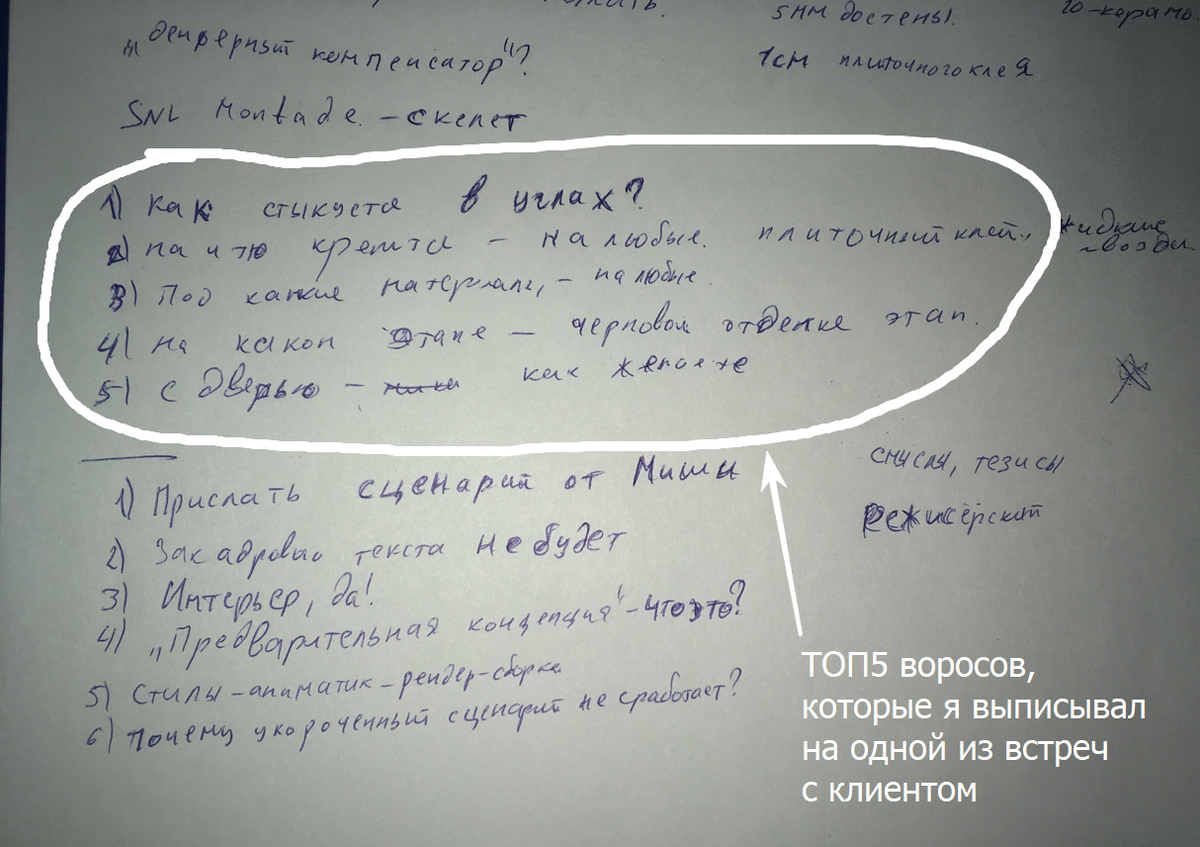 5мм до стены.
„демферный компенсатор"?
1см плиточного клея
SNL Montade. - скелет
1) Как стыкуется в углах?
2) на что крепится - на любые. плиточный клей., жидкие гвозди.
3) Под какие материалы, - на любые.
4) на каком этапе - черновой отделке этап.
5) с дверью - как желаете
1) Прислать сценарий от Миши
смыслы, тезисы
режисёрский
2) Закадрового текста не будет
3) Интерьер, да!
4) „Предварительная концепция" - что это?
5) Стилы-аниматик-рендер-сборка
6) почему укороченный сценарий не сработает?
ТОП5 воросов,
которые я выписывал
на одной из встреч
с клиентом